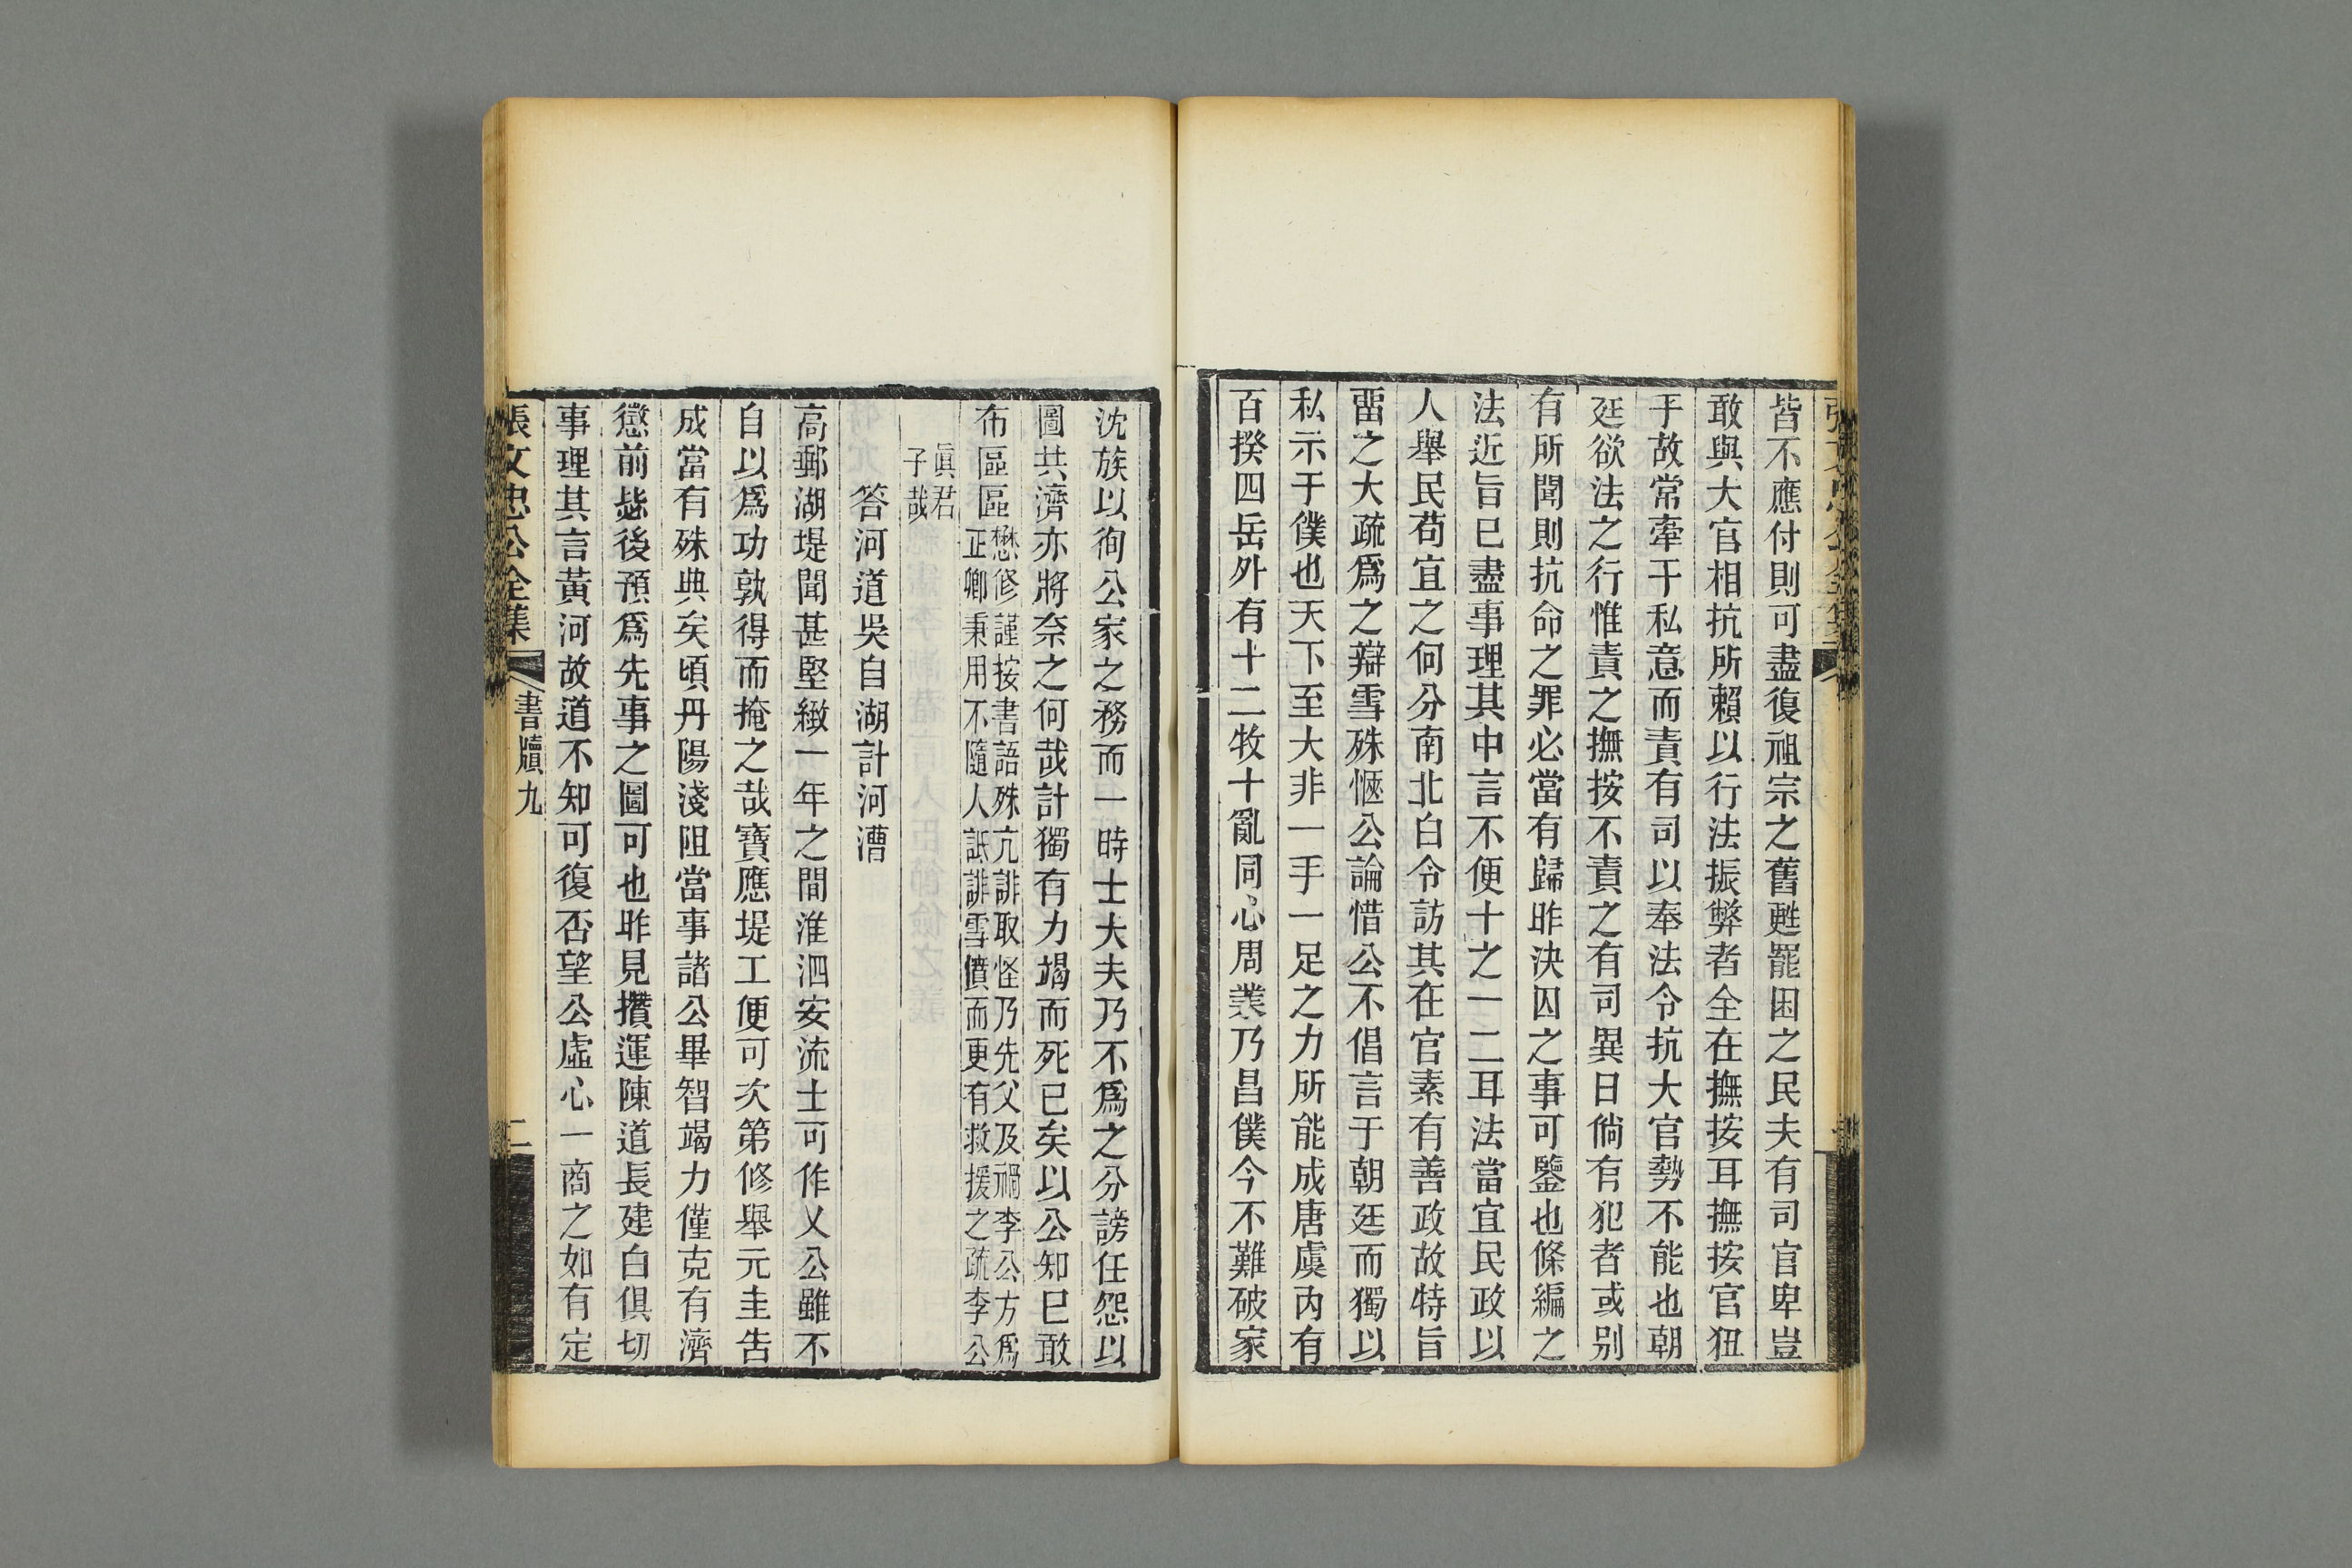 皆不應付則可盡復祖宗之舊甦罷困之民夫有司官卑豈
敢與大官相抗所賴以行法振弊者全在撫按耳撫按官狃
于故常牽于私意而責有司以奉法令抗大官勢不能也朝
廷欲法之行惟責之撫按不責之有司異日倘有犯者或别
有所聞則抗命之罪必當有歸昨決囚之事可鑒也條編之
法近旨已盡事理其中言不便十之一二耳法當宜民政以
人舉民苟宜之何分南北白令訪其在官素有善政故特旨
畱之大疏爲之辯雪殊愜公論惜公不倡言于朝廷而獨以
私示于僕也天下至大非一手一足之力所能成唐虞内有
百揆四岳外有十二牧十亂同心周業乃昌僕今不難破家
沈族以徇公家之務而一時士大夫乃不爲之分謗任怨以
圖共濟亦將奈之何哉計獨有力竭而死已矣以公知已敢
布區區
懋修謹按書語殊亢誹取怪乃先父及禍李公方爲
正卿秉用不隨人詆誹雪僨而更有救援之疏李公
眞君
子哉
答河道吳自湖計河漕
高郵湖堤聞甚堅緻一年之間淮泗安流士可作乂公雖不
自以爲功孰得而掩之哉寶應堤工便可次第修舉元圭告
成當有殊典矣頃丹陽淺阻當事諸公畢智竭力僅克有濟
懲前毖後預爲先事之圖可也昨見攢運陳道長建白俱切
事理其言黃河故道不知可復否望公虛心一商之如有定
張文忠公全集
書牘九
二